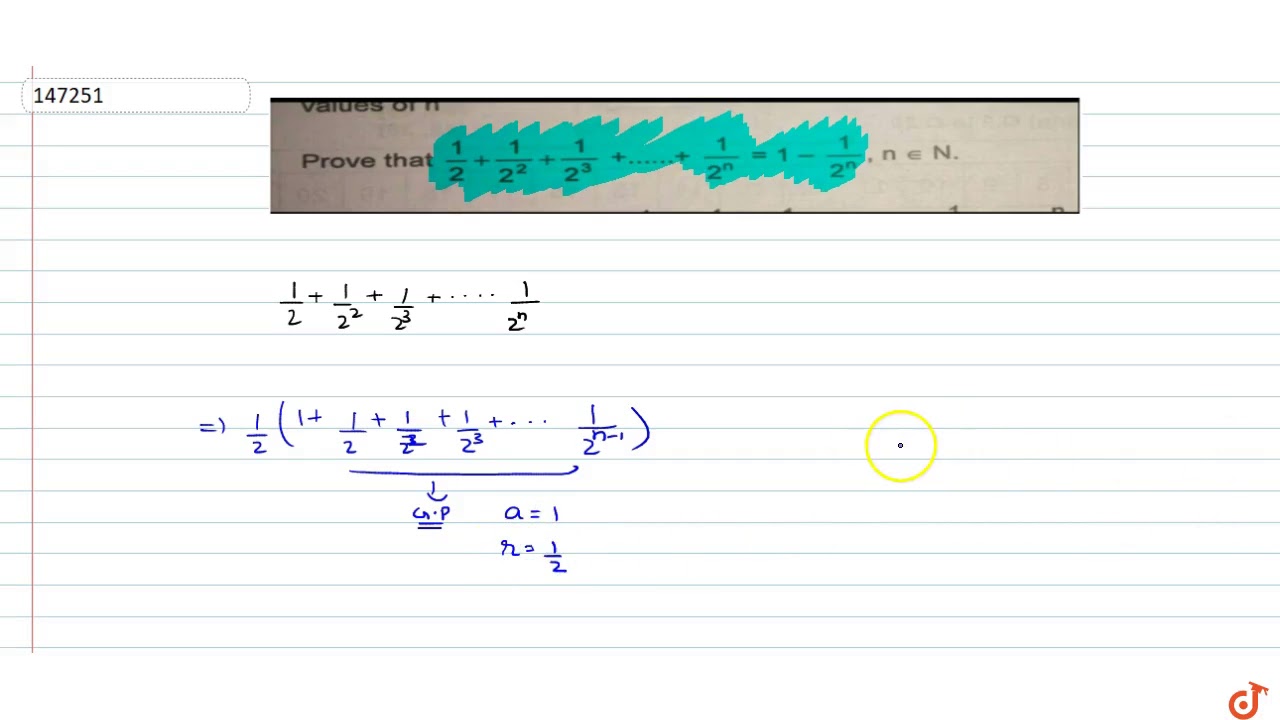 147251
values of n
Prove that 1/2 + 1/2² + 1/2³ +......+ 1/2ⁿ = 1 − 1/2ⁿ, n ∈ N.
1/2 + 1/2² + 1/2³ + ···· 1/2ⁿ
=) 1/2 (1 + 1/2 + 1/2² + 1/2³ + ··· 1/2ⁿ⁻¹)
G.P a = 1
r = 1/2